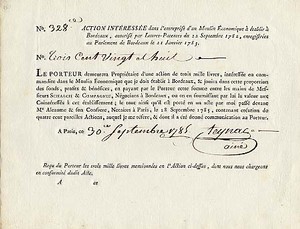 N.º 328 ACTION INTÉRESSÉE dans l'entreprise d'un Moulin Économique à établir à
Bordeaux, autorisé par Lettres-Patentes du 22 Septembre 1782, enregistrées
au Parlement de Bordeaux le 21 Janvier 1783.
N.º Trois Cent Vingt et huit
LE PORTEUR demeurera Propriétaire d'une action de trois mille livres, intéressée en com-
mandite dans le Moulin Économique que je dois établir à Bordeaux, & jouira dans cette
proportion des fonds, profits & bénéfices, en payant par le porteur dans les mains de Mes-
sieurs & COMPAGNIE, Négociants à Bordeaux, ou en en fournissant par lui la valeur aux
Co-intéressés à cet établissement; le tout ainsi qu'il est dit & plus au long porté
Me Alezame & son Confrere, Notaires à Paris, le 28 Septembre 1785, contenant création de
quatre cent pareilles Actions, auquel acte je renvoie, & dont il a été donné communication au Porteur.
A Paris, ce 30 Septembre 1785 Teynac
aîné
Reçu du Porteur les trois mille livres mentionnées en l'Action ci-dessus, dont nous nous chargeons
en conformité dudit Acte.
A ce